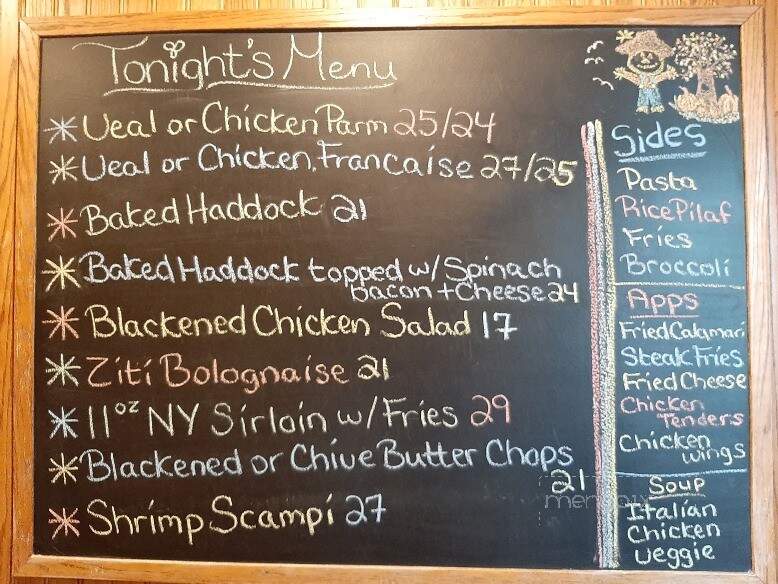 Tonight's Menu
* Veal or Chicken Parm 25/24
* Veal or Chicken Francaise 27/25
* Baked Haddock 21
* Baked Haddock topped w/ Spinach
bacon + Cheese 24
* Blackened Chicken Salad 17
* Ziti Bolognaise 21
* 11oz NY Sirloin w/ Fries 29
* Blackened or Chive Butter Chops
21
* Shrimp Scampi 27
Sides
Pasta
Rice Pilaf
Fries
Broccoli
Apps
Fried Calamari
Steak Fries
Fried Cheese
Chicken
Tenders
Chicken
wings
Soup
Italian
Chicken
Veggie